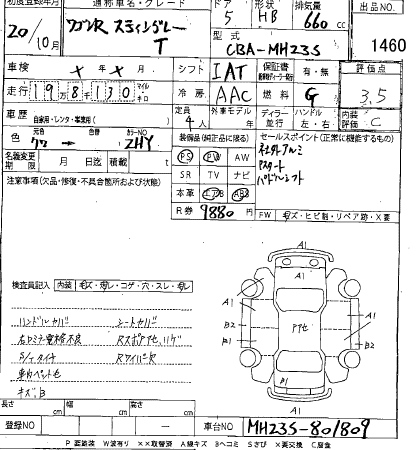 初度登録年月 通称車名・グレード ドア 形状 排気量 出品NO.
20/10月 ワゴンR スティングレー T 5 HB 660cc 1460
型式 CBA-MH23S
車検 × 年 × 月 シフト IAT 保証書 有・無 評価点 3.5
走行 198130 冷房 AAC 燃料 G
車歴 自家用・レンタ・事業用( ) 定員 4人 外車モデル 年 ディーラー 並行 ハンドル 左・右 内装評価 C
色 元色 クロ → 色替 カラーNO ZHY 装備品(純正品に限る) セールスポイント(正常に機能するもの)
PS PW AW 社外アルミ
名義変更期限 月 日迄 積載 t SR TV ナビ Pスタート
注意事項(欠品・修復・不具合箇所および状態) 本革 エアB ABS パドルシフト
R券 9880円 FW キズ・ヒビ割・リペア跡・X要
検査員記入 内装 キズ・汚レ・コゲ・穴・スレ・補レ
ハンドルカバー シートカバー
右ドミラー電格不良
キズ、B
A1
A1 A1
B2 B2
B1 A1
P他
P1
A1
長さ cm 幅 cm 高さ cm
登録NO 車台NO MH23S-801809
P 要塗装 W波有り ××取替済 A線キズ Bヘコミ Sさび ×要交換 C腐食